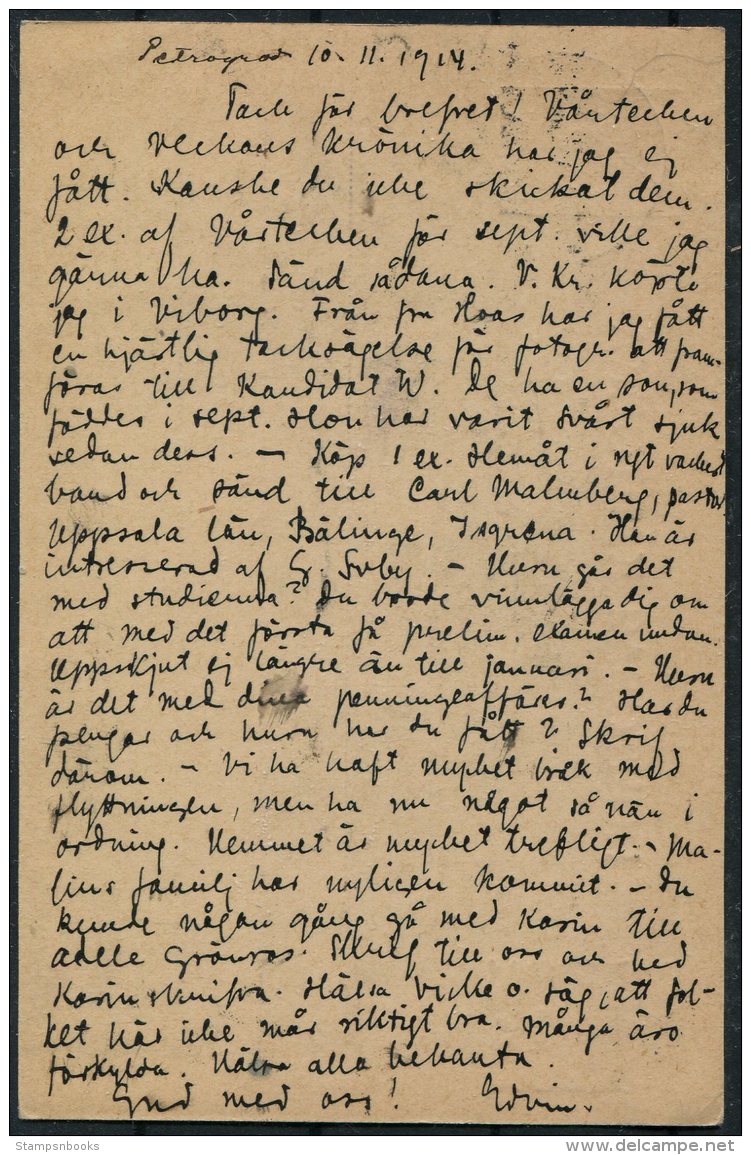 Petrograd 10.11.1914.
Tack för brefvet! Vårtecken
och Veckans Krönika har jag ej
fått. Kanske du icke skickat dem.
2 ex. af Vårtecken för sept. ville jag
gärna ha. Sänd sådana. V. Kr. köpte
jag i Viborg. Från fru Hoas har jag fått
en hjärtlig tacksägelse för fotogr. att fram-
föras till Kandidat W. De ha en son, som
föddes i sept. Hon har varit svårt sjuk
sedan dess. – Köp 1 ex. Hemåt i nytt vackert
band och sänd till Carl Malmberg, pastor
Uppsala län, Bälinge, Isgrena. Han är
intresserad af G. – Huru går det
med studierna? Du borde vinnlägga dig om
att med det första få prelim. examen undan.
Uppskjut ej längre än till januari. – Huru
är det med dina penningeaffärer? Har du
pengar och huru har du fått? Skrif
därom. – Vi ha haft mycket bråk med
flyttningen, men ha nu något så när i
ordning. Hemmet är mycket trefligt. – Ma-
lins familj har nyligen kommit. – Du
kunde någon gång gå med Karin till
Adele Grönroos. Skrif till oss och bed
Karin skrifva. Hälsa o. säg, att fol-
ket här icke mår riktigt bra. Många äro
förkylda. Hälsa alla bekanta.
Gud med oss! Edvin.
Stampsnbooks